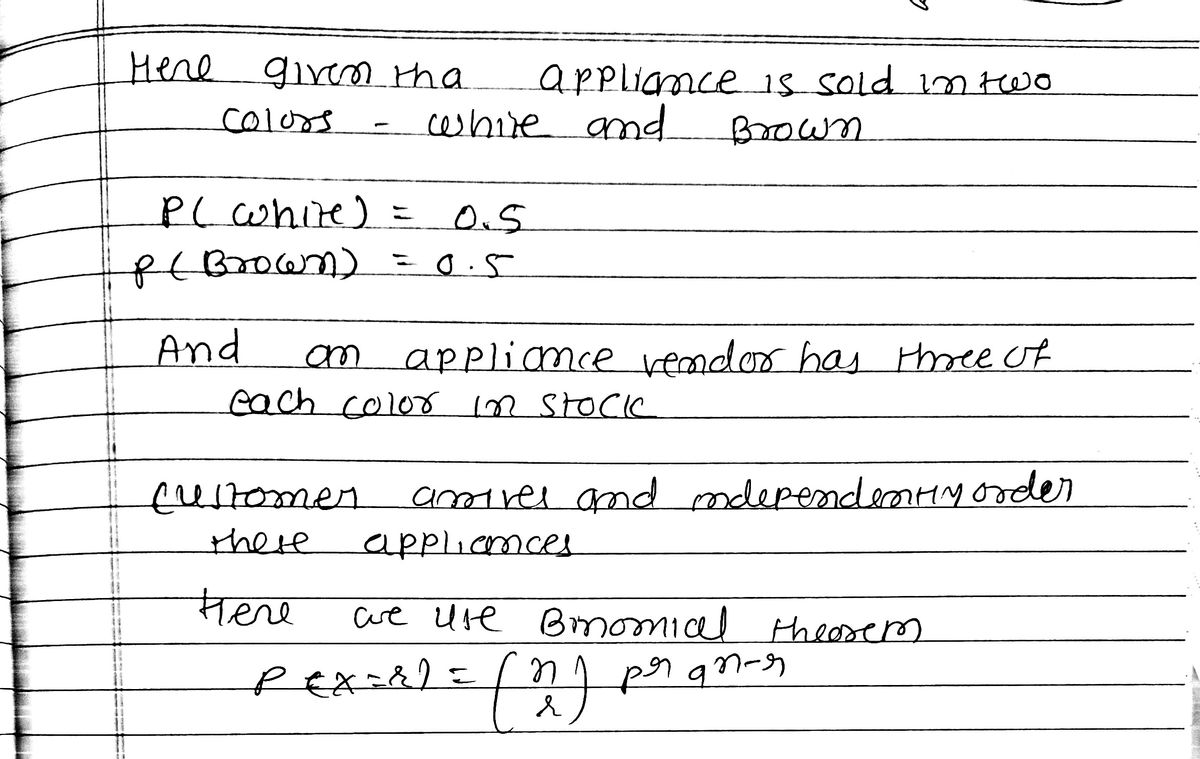 Here given tha appliance is sold in two
colors - white and Brown
P( white) = 0.5
P( Brown) = 0.5
And an appliance vendor has three of
each color in stock
customer arrives and independently order
these appliances
Here we use Binomial theorem
P(X=r) = (n r) p^r q^n-r